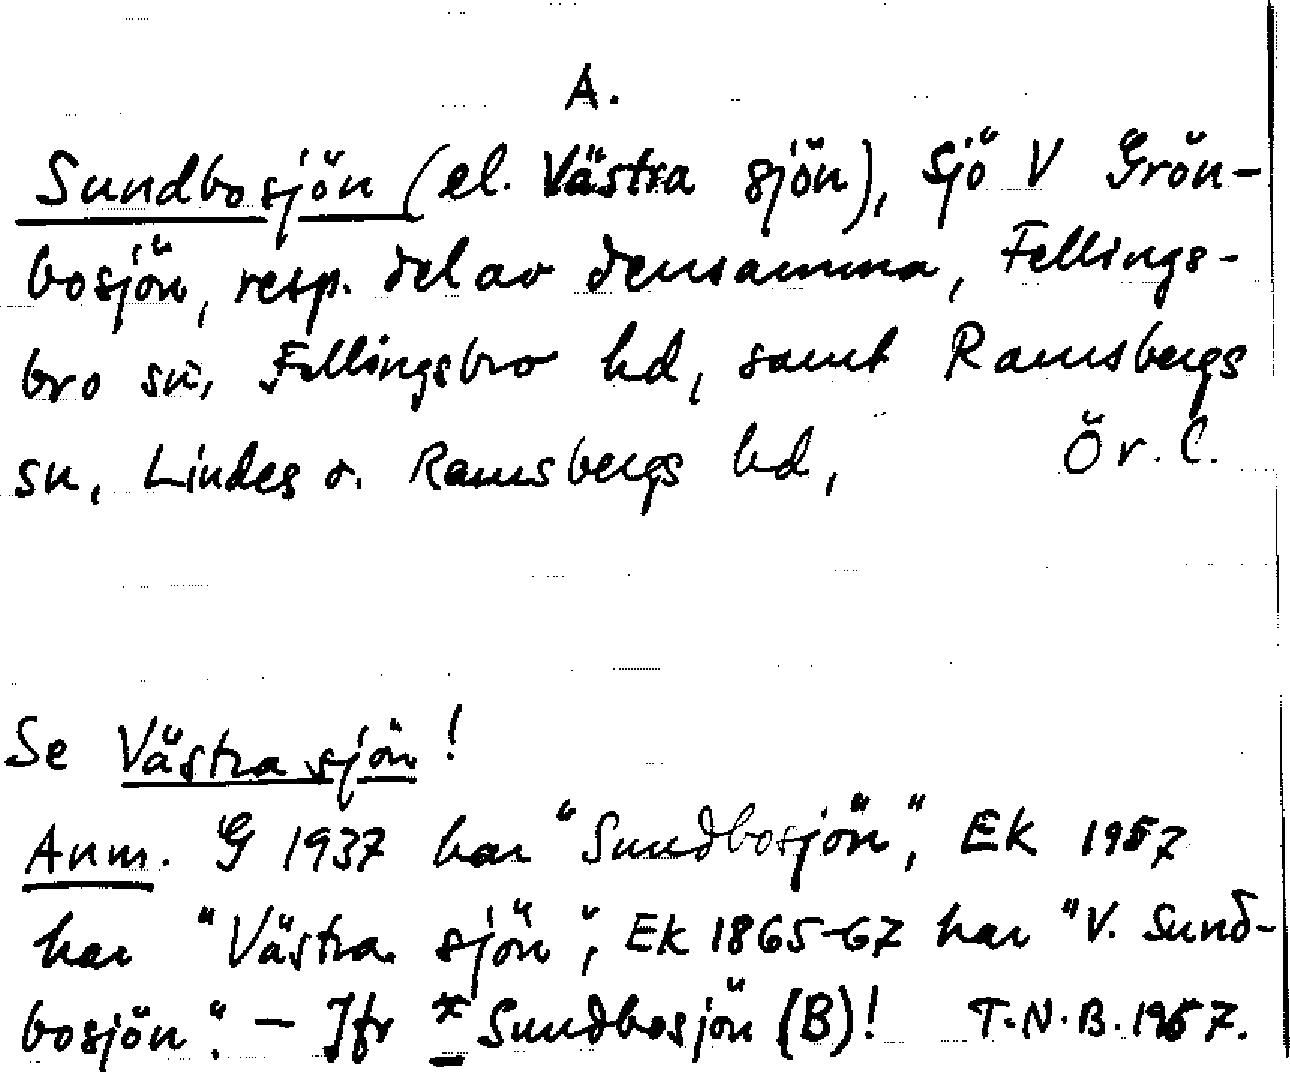 A.
Sundbosjön (el. Västra sjön), sjö V Grön-
bosjön, resp. del av densamma, Fellings-
bro sn, Fellingsbro hd, samt Ramsbergs
sn, Lindes o. Ramsbergs hd, Ör. l.
Se Västra sjön!
Anm. G 1937 har "Sundbosjön", Ek 1957
har "Västra sjön", Ek 1865-67 har "V. Sund-
bosjön". – Jfr *Sundbosjön (B)! T.N.B. 1967.